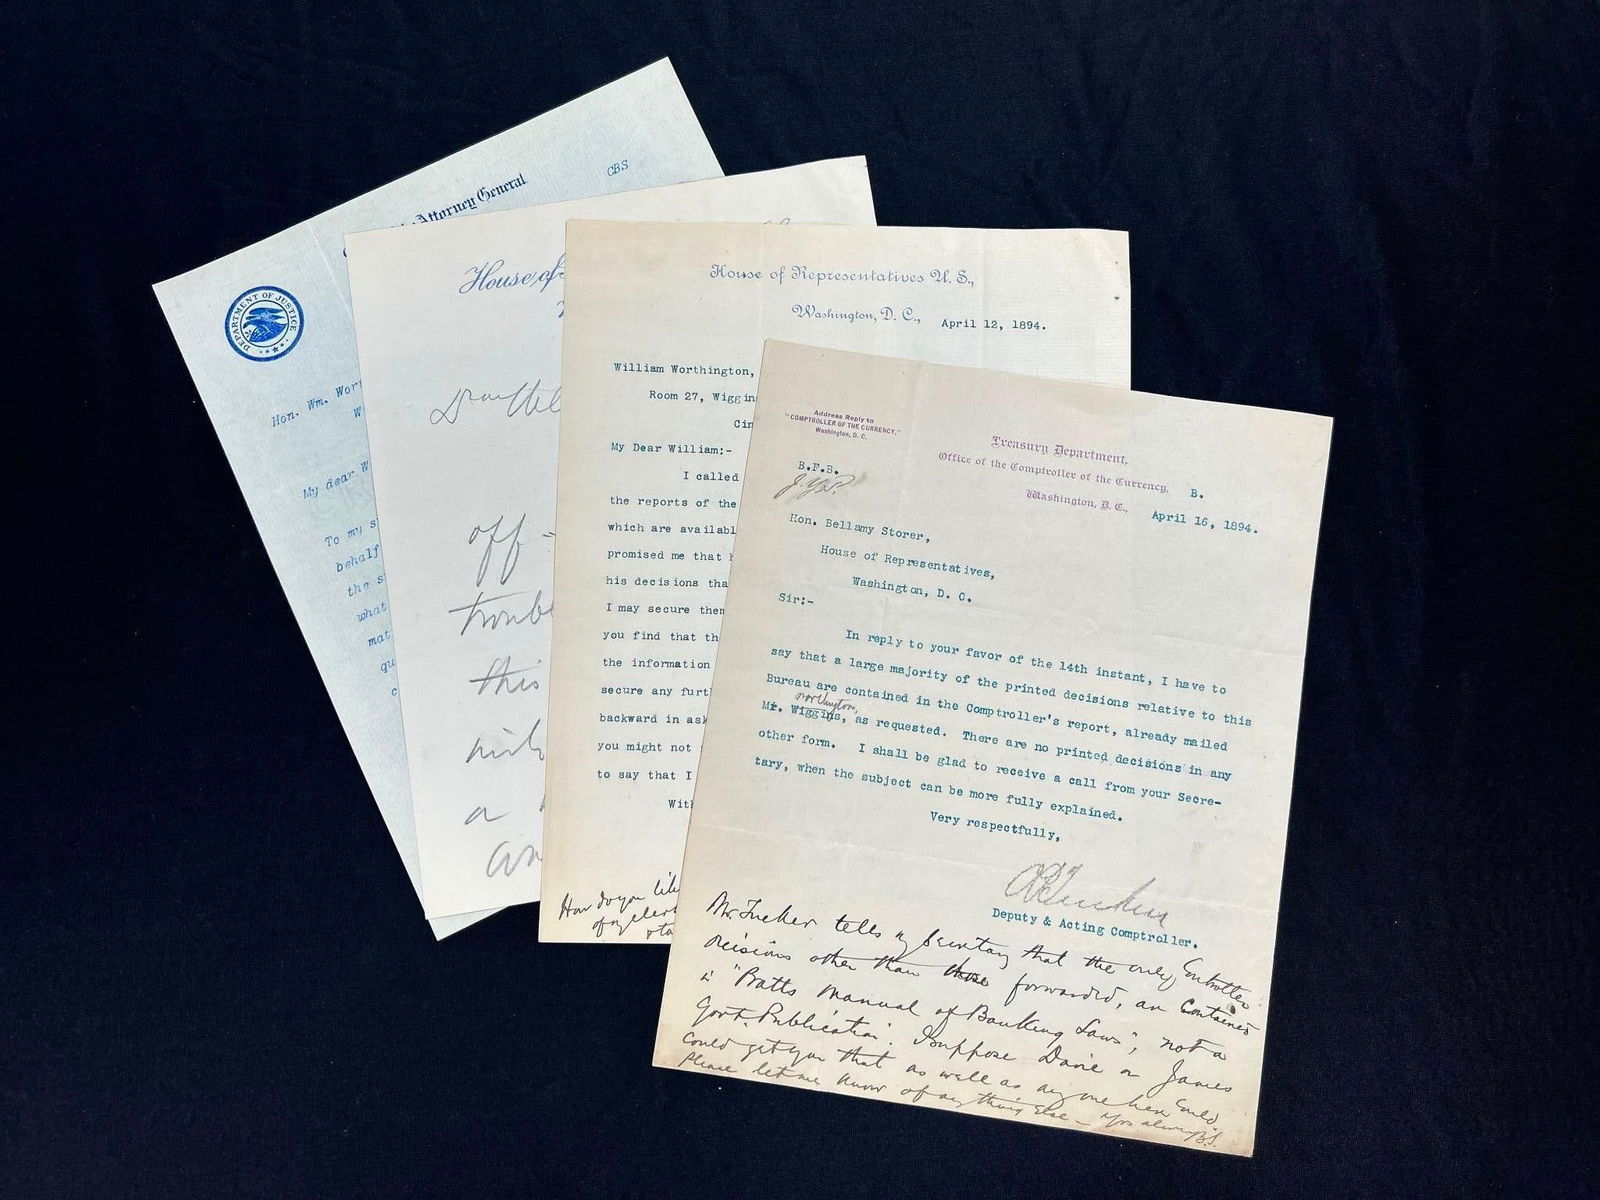 Attorney General
CBS
DEPARTMENT OF JUSTICE
Hon. Wm. Wor
W
My dear W
To my s
behalf
the s
what
mat
qu
c
House of
off -
troub
this
a
House of Representatives U. S.,
Washington, D. C.,
April 12, 1894.
William Worthington,
Room 27, Wiggin
Cin
My Dear William:-
I called
the reports of the
which are availabl
promised me that h
his decisions tha
I may secure them
you find that th
the information
secure any furt
backward in ask
you might not
to say that I
With
How do you lik
of my
Address Reply to
"COMPTROLLER OF THE CURRENCY,"
Washington, D. C.
Treasury Department,
Office of the Comptroller of the Currency,
Washington, D. C.,
B.
April 16, 1894.
B.F.B.
Hon. Bellamy Storer,
House of Representatives,
Washington, D. C.
Sir:-
In reply to your favor of the 14th instant, I have to
say that a large majority of the printed decisions relative to this
Bureau are contained in the Comptroller's report, already mailed
northington,
Mr. Wiggins, as requested. There are no printed decisions in any
other form. I shall be glad to receive a call from your Secre-
tary, when the subject can be more fully explained.
Very respectfully,
Deputy & Acting Comptroller.
Mr. Tucker tells my Secretary that the only Controller
decisions other than those forwarded, are contained
in "Pratts Manual of Banking Laws", not a
Govt. Publication. I suppose Dave or James
could get you that as well as any one here could
Please let me know of anything else - Yrs always B.S.